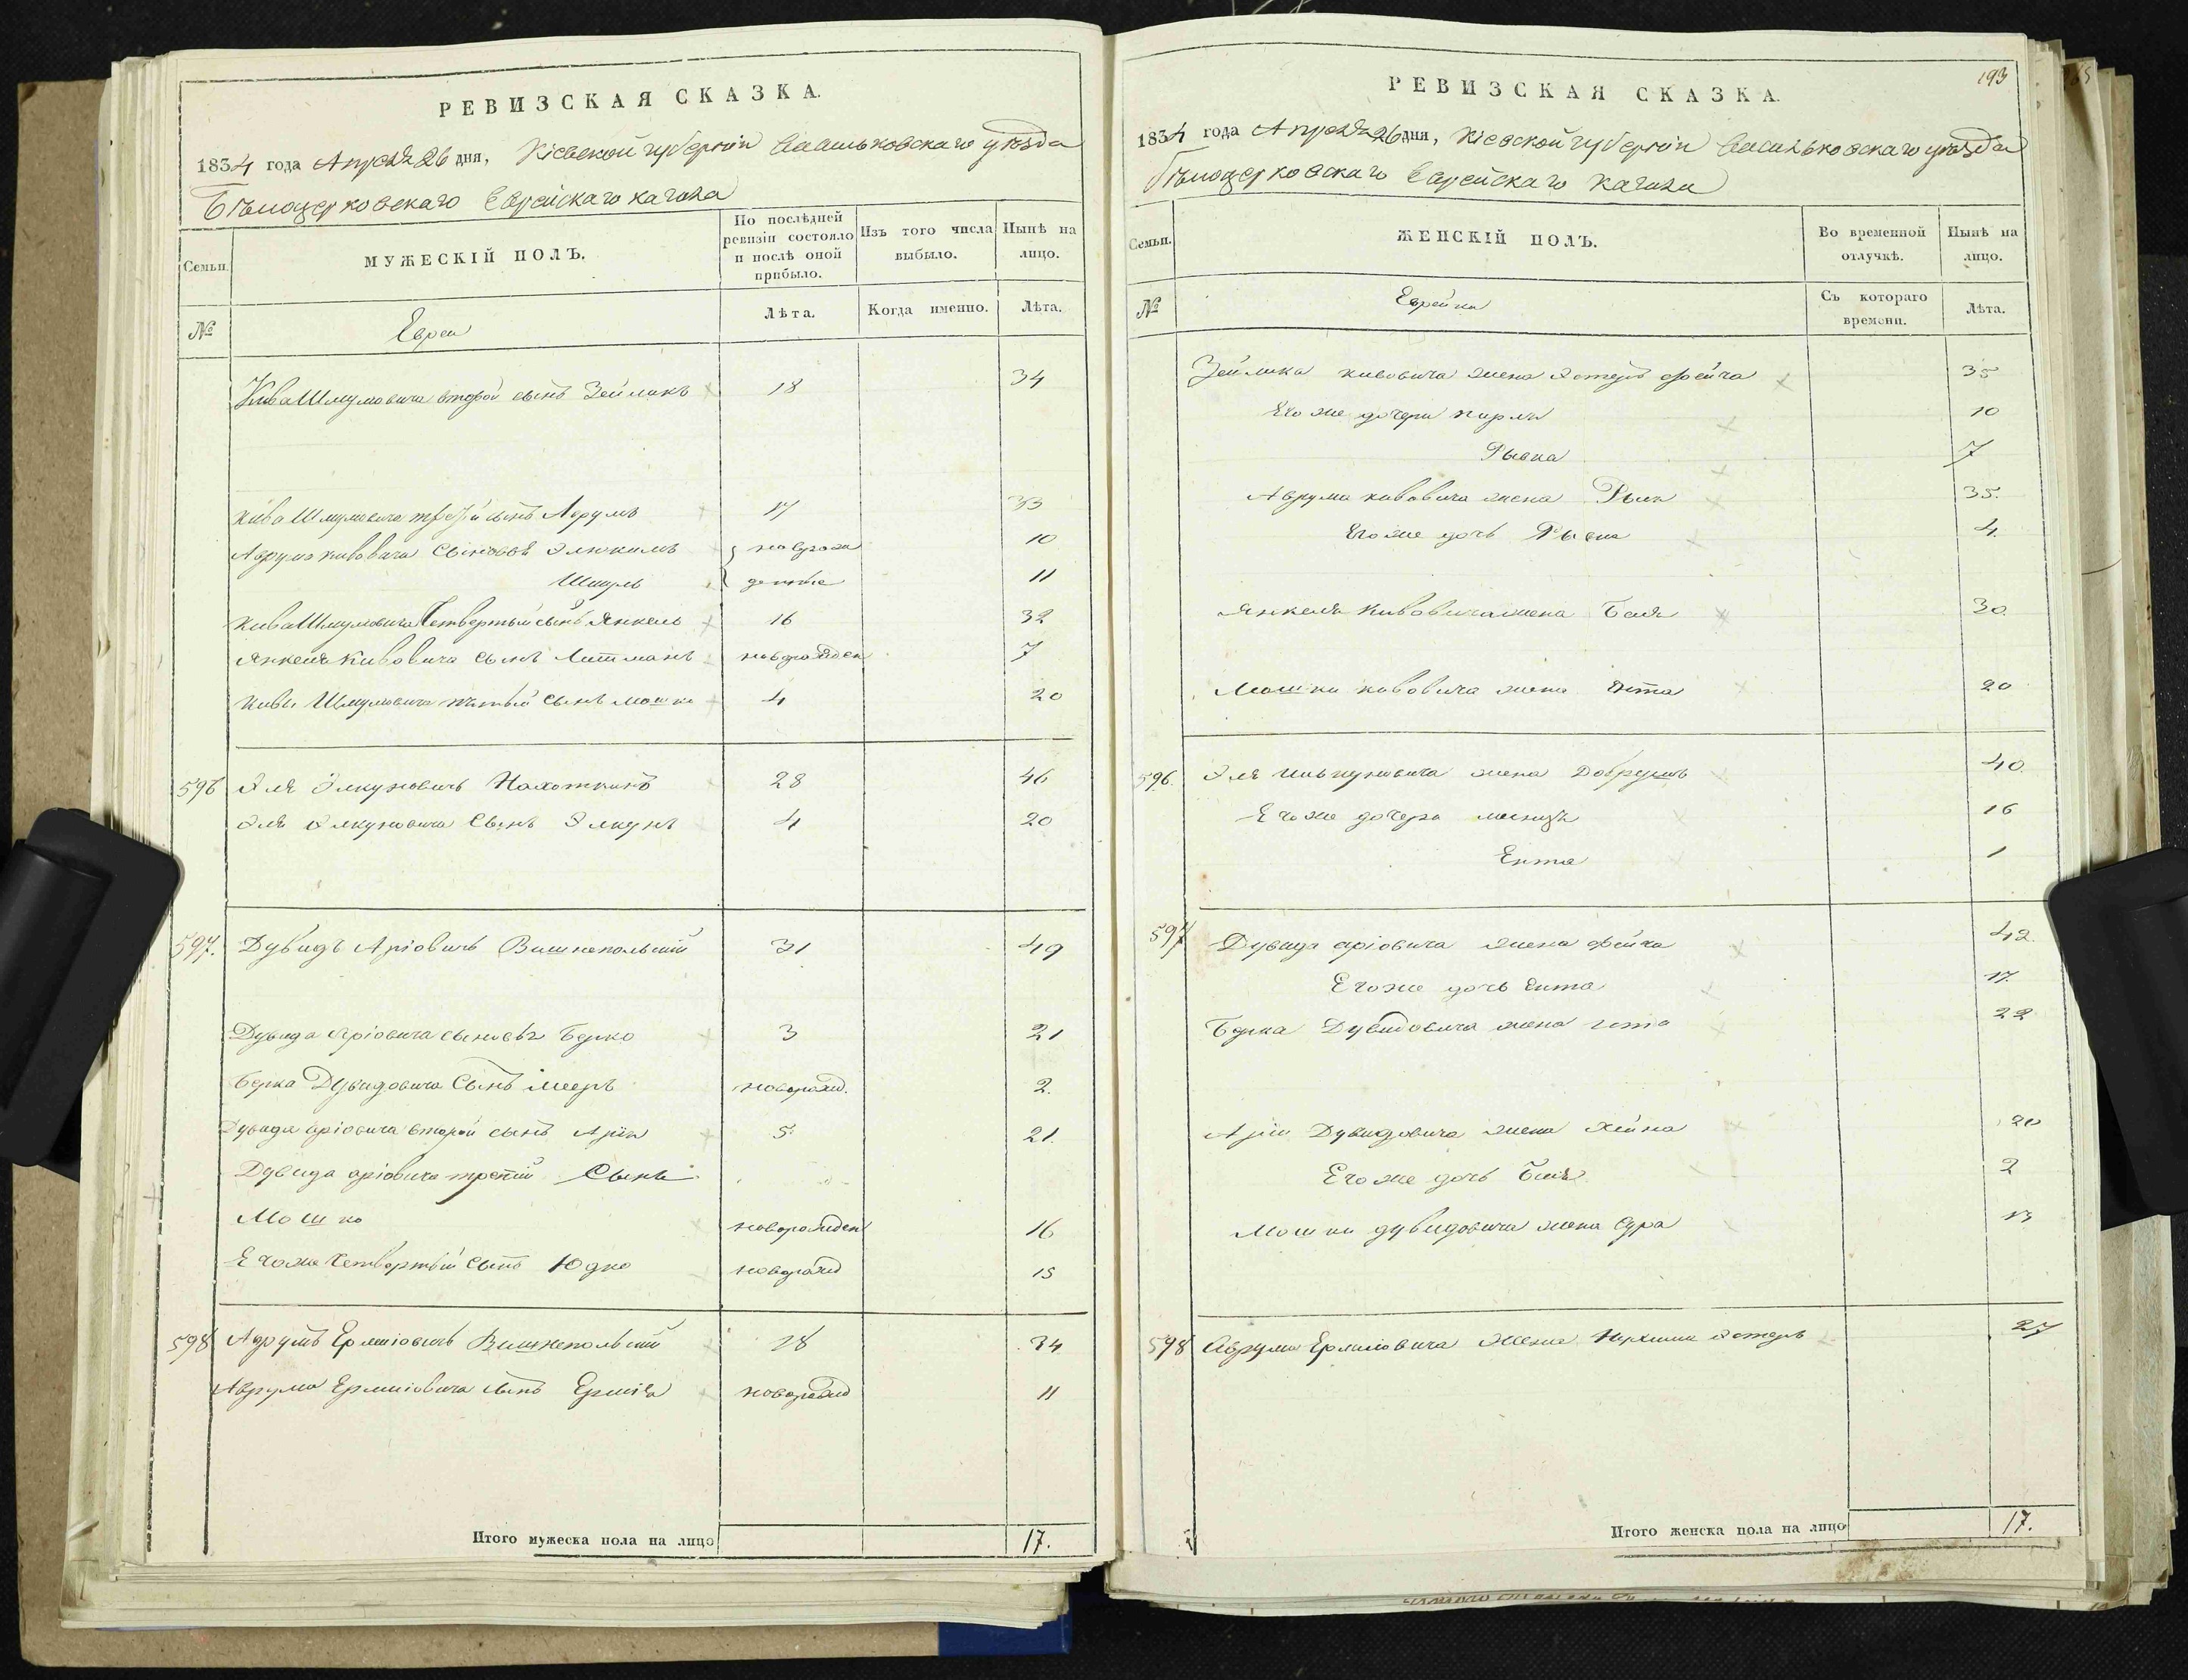 РЕВИЗСКАЯ СКАЗКА.
1834 года Апреля 26 дня, Кіевской губерніи Васильковскаго уѣзда
Бѣлоцерковскаго Еврейскаго кагала
Семьи.
МУЖЕСКІЙ ПОЛЪ.
По послѣдней ревизіи состояло и послѣ оной прибыло.
Изъ того числа выбыло.
Нынѣ на лицо.
№
Евреи
Лѣта.
Когда именно.
Лѣта.
Кива Шмуловича второй сынъ Зейликъ 18 34
Кива Шмуловича третій сынъ Аврумъ 17 33
Аврума Кивовича сыновья новрож 10
Шмуль денные 11
Кива Шмуловича Четвертый сынъ Янкель 16 32
Янкеля Кивовича сынъ Литманъ новорожден 7
Кивы Шмуловича пятый сынъ Мошко 4 20
596 Эля Элкуновичъ 28 46
Эля Элкуновича Сынъ Элкунъ 4 20
597. Дувидъ Аріовичъ Вишнопольскій 31 49
Дувида Аріовича сыновья Берко 3 21
Берка Дувидовича Сынъ Мееръ новорожд. 2.
Дувида Аріовича второй сынъ Арія 5 21.
Дувида аріовича третій Сынъ
Мошко новорожден 16
Егоже Четвертый сынъ Юдко новорожд 15
598 Аврумъ Ерміовичъ Вишнепольскій 18 34
Аврума Ерміовича сынъ новорожд 11
Итого мужеска пола на лицо 17.
193
РЕВИЗСКАЯ СКАЗКА.
1834 года Апреля 26 дня, Кіевской губерніи Васильковскаго уѣзда
Бѣлоцерковскаго Еврейскаго кагала
Семьи.
ЖЕНСКІЙ ПОЛЪ.
Во временной отлучкѣ.
Нынѣ на лицо.
№
Еврейки
Съ котораго времени.
Лѣта.
Зейлика кивовича жена Эстеръ фейга 35
Его же дочери перля 10
Рывка 7
Аврума кивовича жена 35.
Его же дочь Рывка 4.
Янкеля Кивовича жена Бася 30.
Мошки кивовича жена Ента 20
596. Эля жена Добрушъ 40.
Его же дочери 16
Ента 1
597 Дувида аріовича жена фейга 42.
Его же дочь Ента 17.
Берка Дувидовича жена 22
Арія Дувидовича жена Хейна 20
Его же дочь Бася 2
Мошки дувидовича жена Сура 17
598 Аврума Ерміовича жена Эстеръ 27
Итого женска пола на лицо 17.